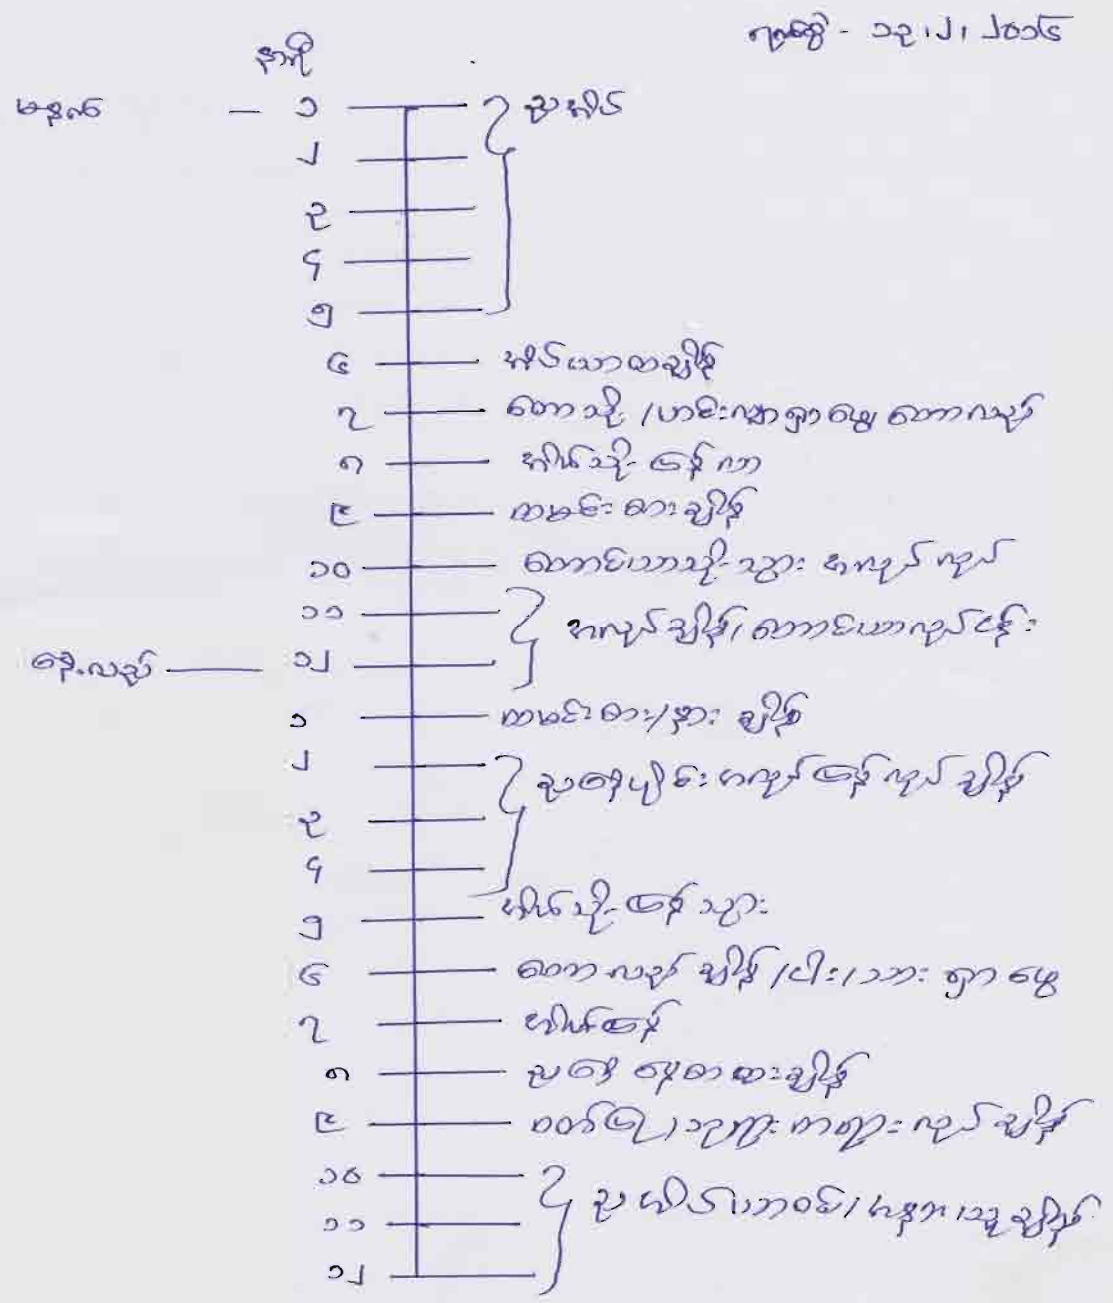 ရက်စွဲ - ၁၃၊၂၊ ၂၀၁၆
နာရီ
မနက် — ၁ ညအိပ်
၂
၃
၄
၅
၆ အိပ်ယာထချိန်
၇ တောသို့ /ဟင်းလျာရှာဖွေ တောလည်
၈ အိမ်သို့ ပြန်လာ
၉ ထမင်းစားချိန်
၁၀ တောင်ယာသို့ သွား အလုပ် လုပ်
၁၁ အလုပ်ချိန်/ တောင်ယာလုပ်ငန်း
နေ့လည် — ၁၂
၁ ထမင်းစား/နား ချိန်
၂ ညနေပိုင်း အလုပ် ပြန် လုပ် ချိန်
၃
၄
၅ အိမ်သို့ ပြန် သွား
၆ တောလည် ချိန် /ငါး/သား ရှာ ဖွေ
၇ အိမ်ပြန်
၈ ညနေ စာ စားချိန်
၉ ဝတ်ပြု / လုပ် ချိန်
၁၀ ညအိပ် / ချိန်
၁၁
၁၂